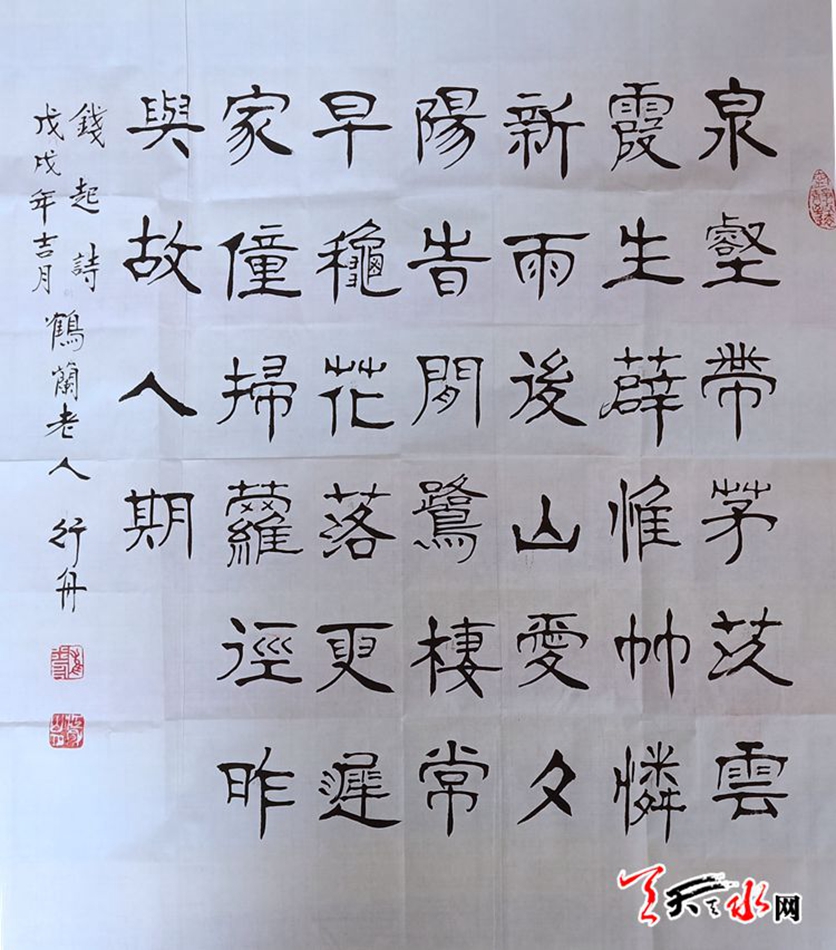 泉壑帶茅茨雲
霞生薜惟竹憐
新雨後山愛夕
陽旹閒鷺棲常
早龝花落更遲
家僮掃蘿徑昨
與故人期
錢起詩
戊戌年吉月
鶴蘭老人 行舟
天天天水网